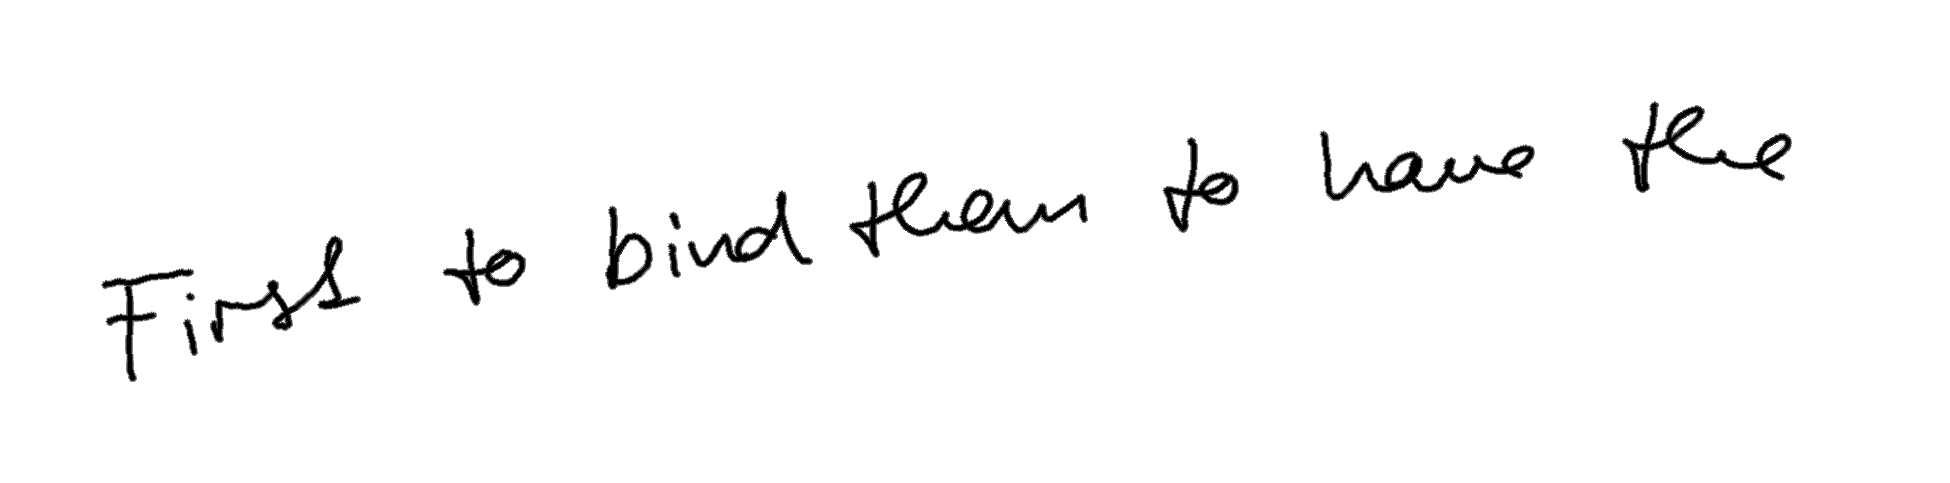 First to bind them to have the